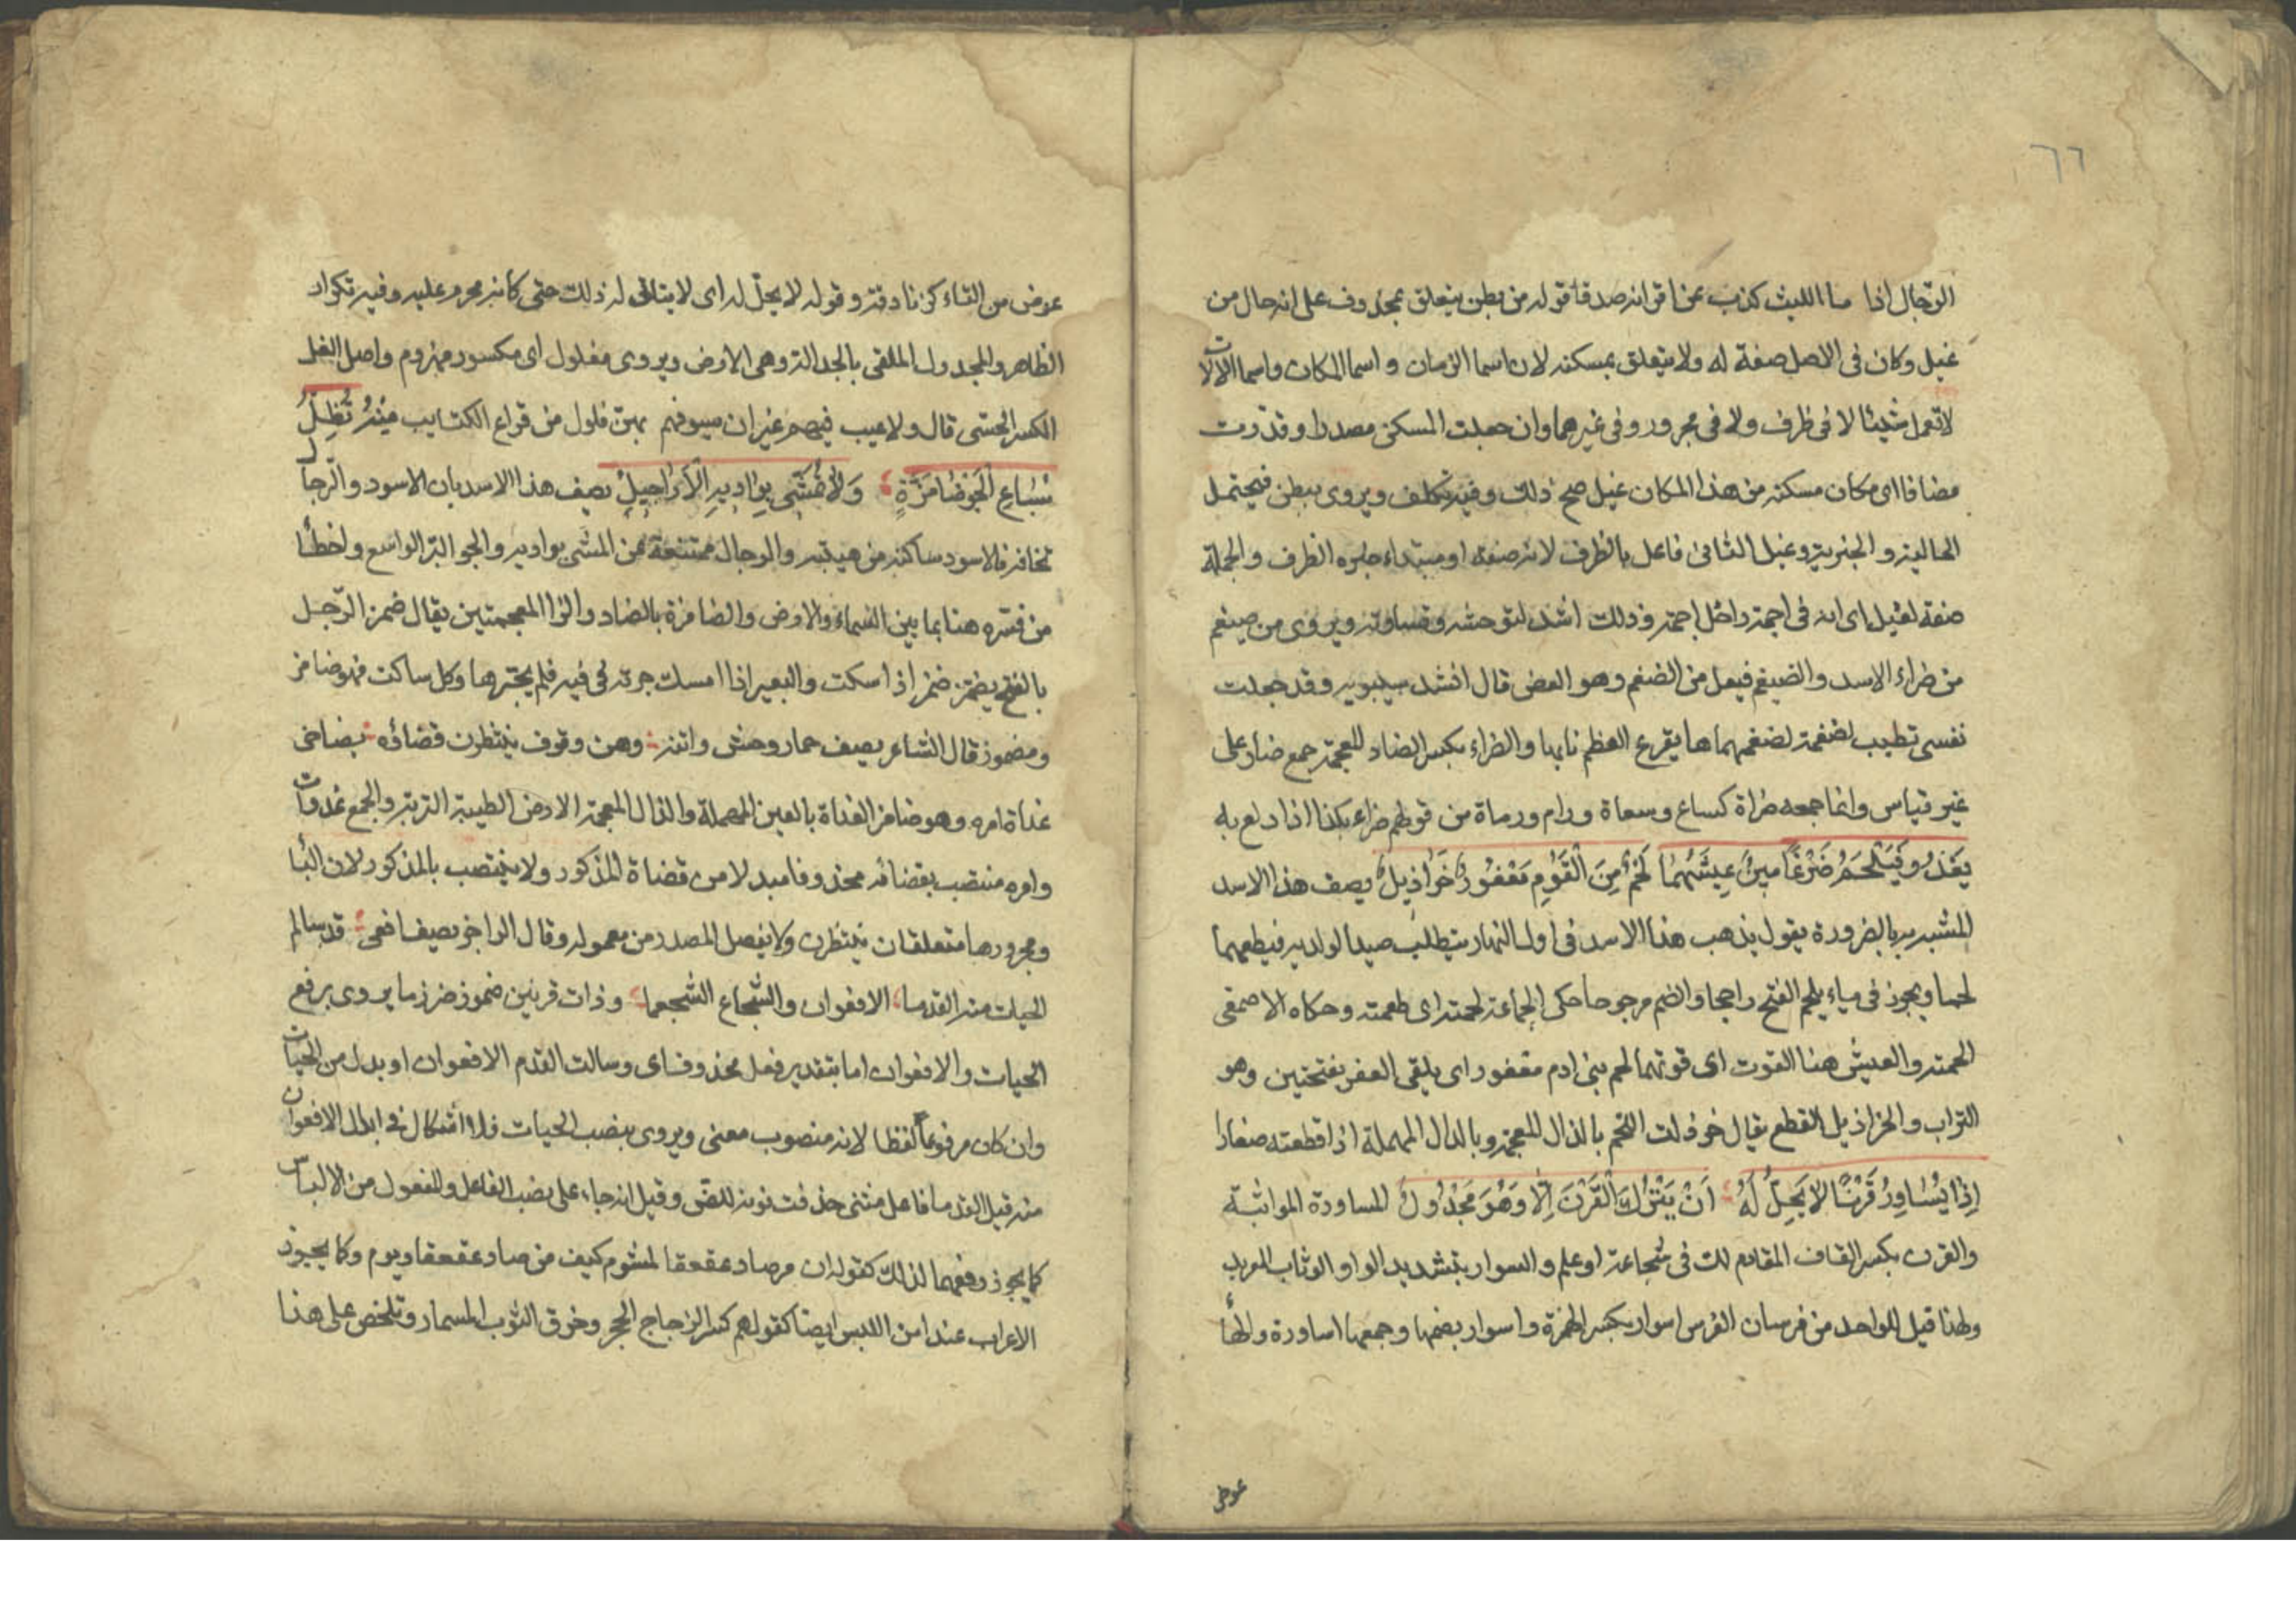 ٦٦
الرجال اذا ما الليث كذب عن اقرانه صدقا قوله من بطن يتعلق بمحذوف على انه حال من
غيل وكان فى الاصل صفة له ولا يتعلق بمسكنه لان اسما الزمان و اسما المكان واسما الالات
لا تعمل شيئا لا فى ظرف ولا فى مجرور و فى غيرهما وان جعلت المسكن مصدرا و قدرت
مضافا اى مكان مسكنه من هذا المكان غيل صح ذلك وفيه تكلف ويروى ببطن فيحتمل
الحالية و الخبرية وغيل الثانى فاعل بالظرف لانه صفة او مبتداء خبره الظرف والجملة
صفة لغيل اى انه فى اجمة داخل اجمة وذلك اشد لتوحشه وقساوته ويروى من ضيغم
من ضراء الاسد والضيغم فيعل من الضغم وهو العض قال انشد سيبويه وقد جعلت
نفسى تطيب لضغمة لضغمهماها يقرع العظم نابها والضراء بكسر الضاد المعجمة جمع ضار على
غير قياس وانما جمعه ضراة كساع وسعاة ورام ورماة من قولهم ضراء بكذا اذا ولع به
يَغْدُو فَيُلْحِمُ ضِرْغَامَيْنِ عَيْشُهُمَا لَحْمٌ مِنَ الْقَوْمِ مَعْفُورٌ خَرَاذِيلُ يصف هذا الاسد
المشبه به بالضرورة يقول يذهب هذا الاسد فى اول النهار يتطلب صيدا لولديه فيطعمهما
لحما ويجوز فى ياء يلحم الفتح راجحا والضم مرجوحا حكى الجماعة لحمته اى طعمته وحكاه الاصمعى
الحمته والعيش هنا القوت اى قوتهما لحم بنى ادم معفور اى يلقى العفر بفتحتين وهو
التراب والخراذيل القطع يقال خرذلت اللحم بالذال المعجمة وبالدال المهملة اذا قطعته صغارا
اِذَا يُسَاوِرُ قِرْنًا لَا يَحِلُّ لَهُ اَنْ يَتْرُكَ الْقِرْنَ اِلَّا وَهُوَ مَجْدُولُ المساورة المواثبة
والقرن بكسر القاف المقاوم لك فى شجاعة او علم والسوار بتشديد الواو الوثاب المعربد
ولهذا قيل للواحد من فرسان الفرس اسوار بكسر الهمزة واسوار بضمها وجمعها اساورة والهاء
عوض
عوض من التاء كزنادقة وقوله لا يحل له اى لا يتاتى له ذلك حتى كانه محرم عليه وفيه تكرار
الظاهر والمجدول الملقى بالجدالة وهى الارض ويروى مفلول اى مكسور مهزوم واصل الفل
الكسر الحسى قال ولا عيب فيهم غير ان سيوفهم بهن فلول من قراع الكتايب مِنْهُ تَظَلُّ
سِبَاعُ الْجَوِّ ضَامِزَةً وَلَا تَمَشَّى بِوَادِيهِ الْاَرَاجِيلُ يصف هذا الاسد بان الاسود والرجال
تخافه فالاسود ساكنه من هيبته والرجال ممتنعة من المشى بواديه والجو البر الواسع واخطأ
من فسره هنا بما بين السماء والارض والضامزة بالضاد والزا المعجمتين يقال ضمز الرجل
بالفتح يضمز ضمز اذا سكت والبعير اذا امسك جرته فى فيه فلم يجترها وكل ساكت فهو ضامز
وضموز قال الشاعر يصف حمار وحش واتنه وهن وقوف ينتظرن قضاؤه بضاحى
غداة امره وهو ضامز الغداة بالعين المهملة والذال المعجمة الارض الطيبة التربة والجمع غدوات
وامره منتصب بقضائه محذوفا مبدلا من قضاة المذكور ولا ينتصب بالمذكور لان البا
ومجرورها متعلقان بينتظرن ولا يفصل المصدر من معموله وقال الراجز يصف افعى قد سالم
الحيات منه القدما الافعوان والشجاع الشجعما وذات قرنين ضموز ضرزما يروى برفع
الحيات والافعوان اما بتقدير فعل محذوف اى وسالت القدم الافعوان او بدل من الحيات
وان كان مرفوعا لفظا لانه منصوب معنى ويروى بنصب الحيات فلا اشكال فى ابدال الافعوان
منه قيل القدما فاعل مثنى حذفت نونه للضرو وقيل انه جاء على نصب الفاعل والمفعول من الالباس
كما يجوز رفعهما لذلك كقوله ان من صاد عقعقا لمشوم كيف من صاد عقعقا وبوم وكما يجوز
الاعراب عند امن اللبس ايضا كقولهم كسر الزجاج الحجر وخرق الثوب المسمار وتلخص على هذا